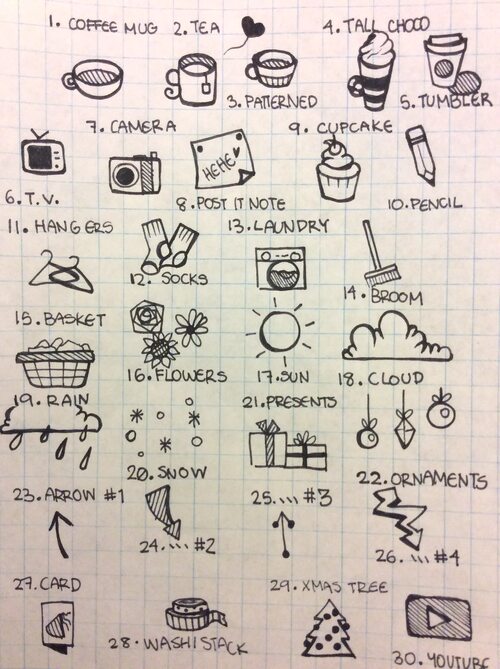 1. COFFEE MUG
2. TEA
3. PATTERNED
4. TALL CHOCO
5. TUMBLER
6. T.V.
7. CAMERA
HEHE
8. POST IT NOTE
9. CUPCAKE
10. PENCIL
11. HANGERS
12. SOCKS
13. LAUNDRY
14. BROOM
15. BASKET
16. FLOWERS
17. SUN
18. CLOUD
19. RAIN
20. SNOW
21. PRESENTS
22. ORNAMENTS
23. ARROW #1
24. \\\ #2
25. \\\ #3
26. \\\ #4
27. CARD
28. WASHI STACK
29. XMAS TREE
30. YOUTUBE